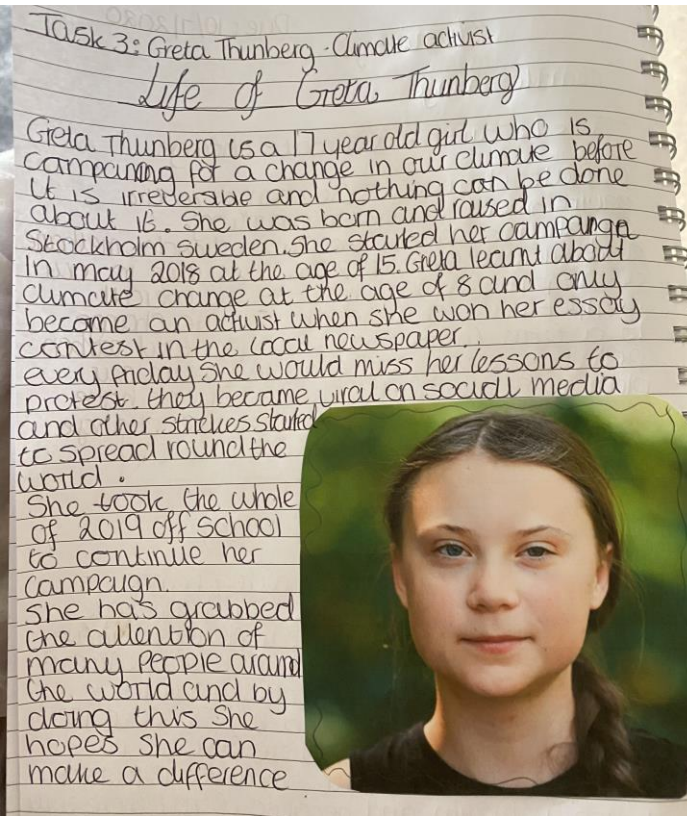 Task 3: Greta Thunberg - Climate activist
Life of Greta Thunberg
Greta Thunberg is a 17 year old girl who is
campaning for a change in our climate before
it is irreverable and nothing can be done
about it. She was born and raised in
Stockholm Sweden. She started her campange
in may 2018 at the age of 15. Greta learnt about
climate change at the age of 8 and only
become an activist when she won her essay
contest in the local newspaper.
every friday she would miss her lessons to
protest. they became viral on social media
and other strickes started
to spread round the
world.
She took the whole
of 2019 off school
to continue her
campaign.
She has grabbed
the attention of
many people around
the world and by
doing this she
hopes she can
make a difference